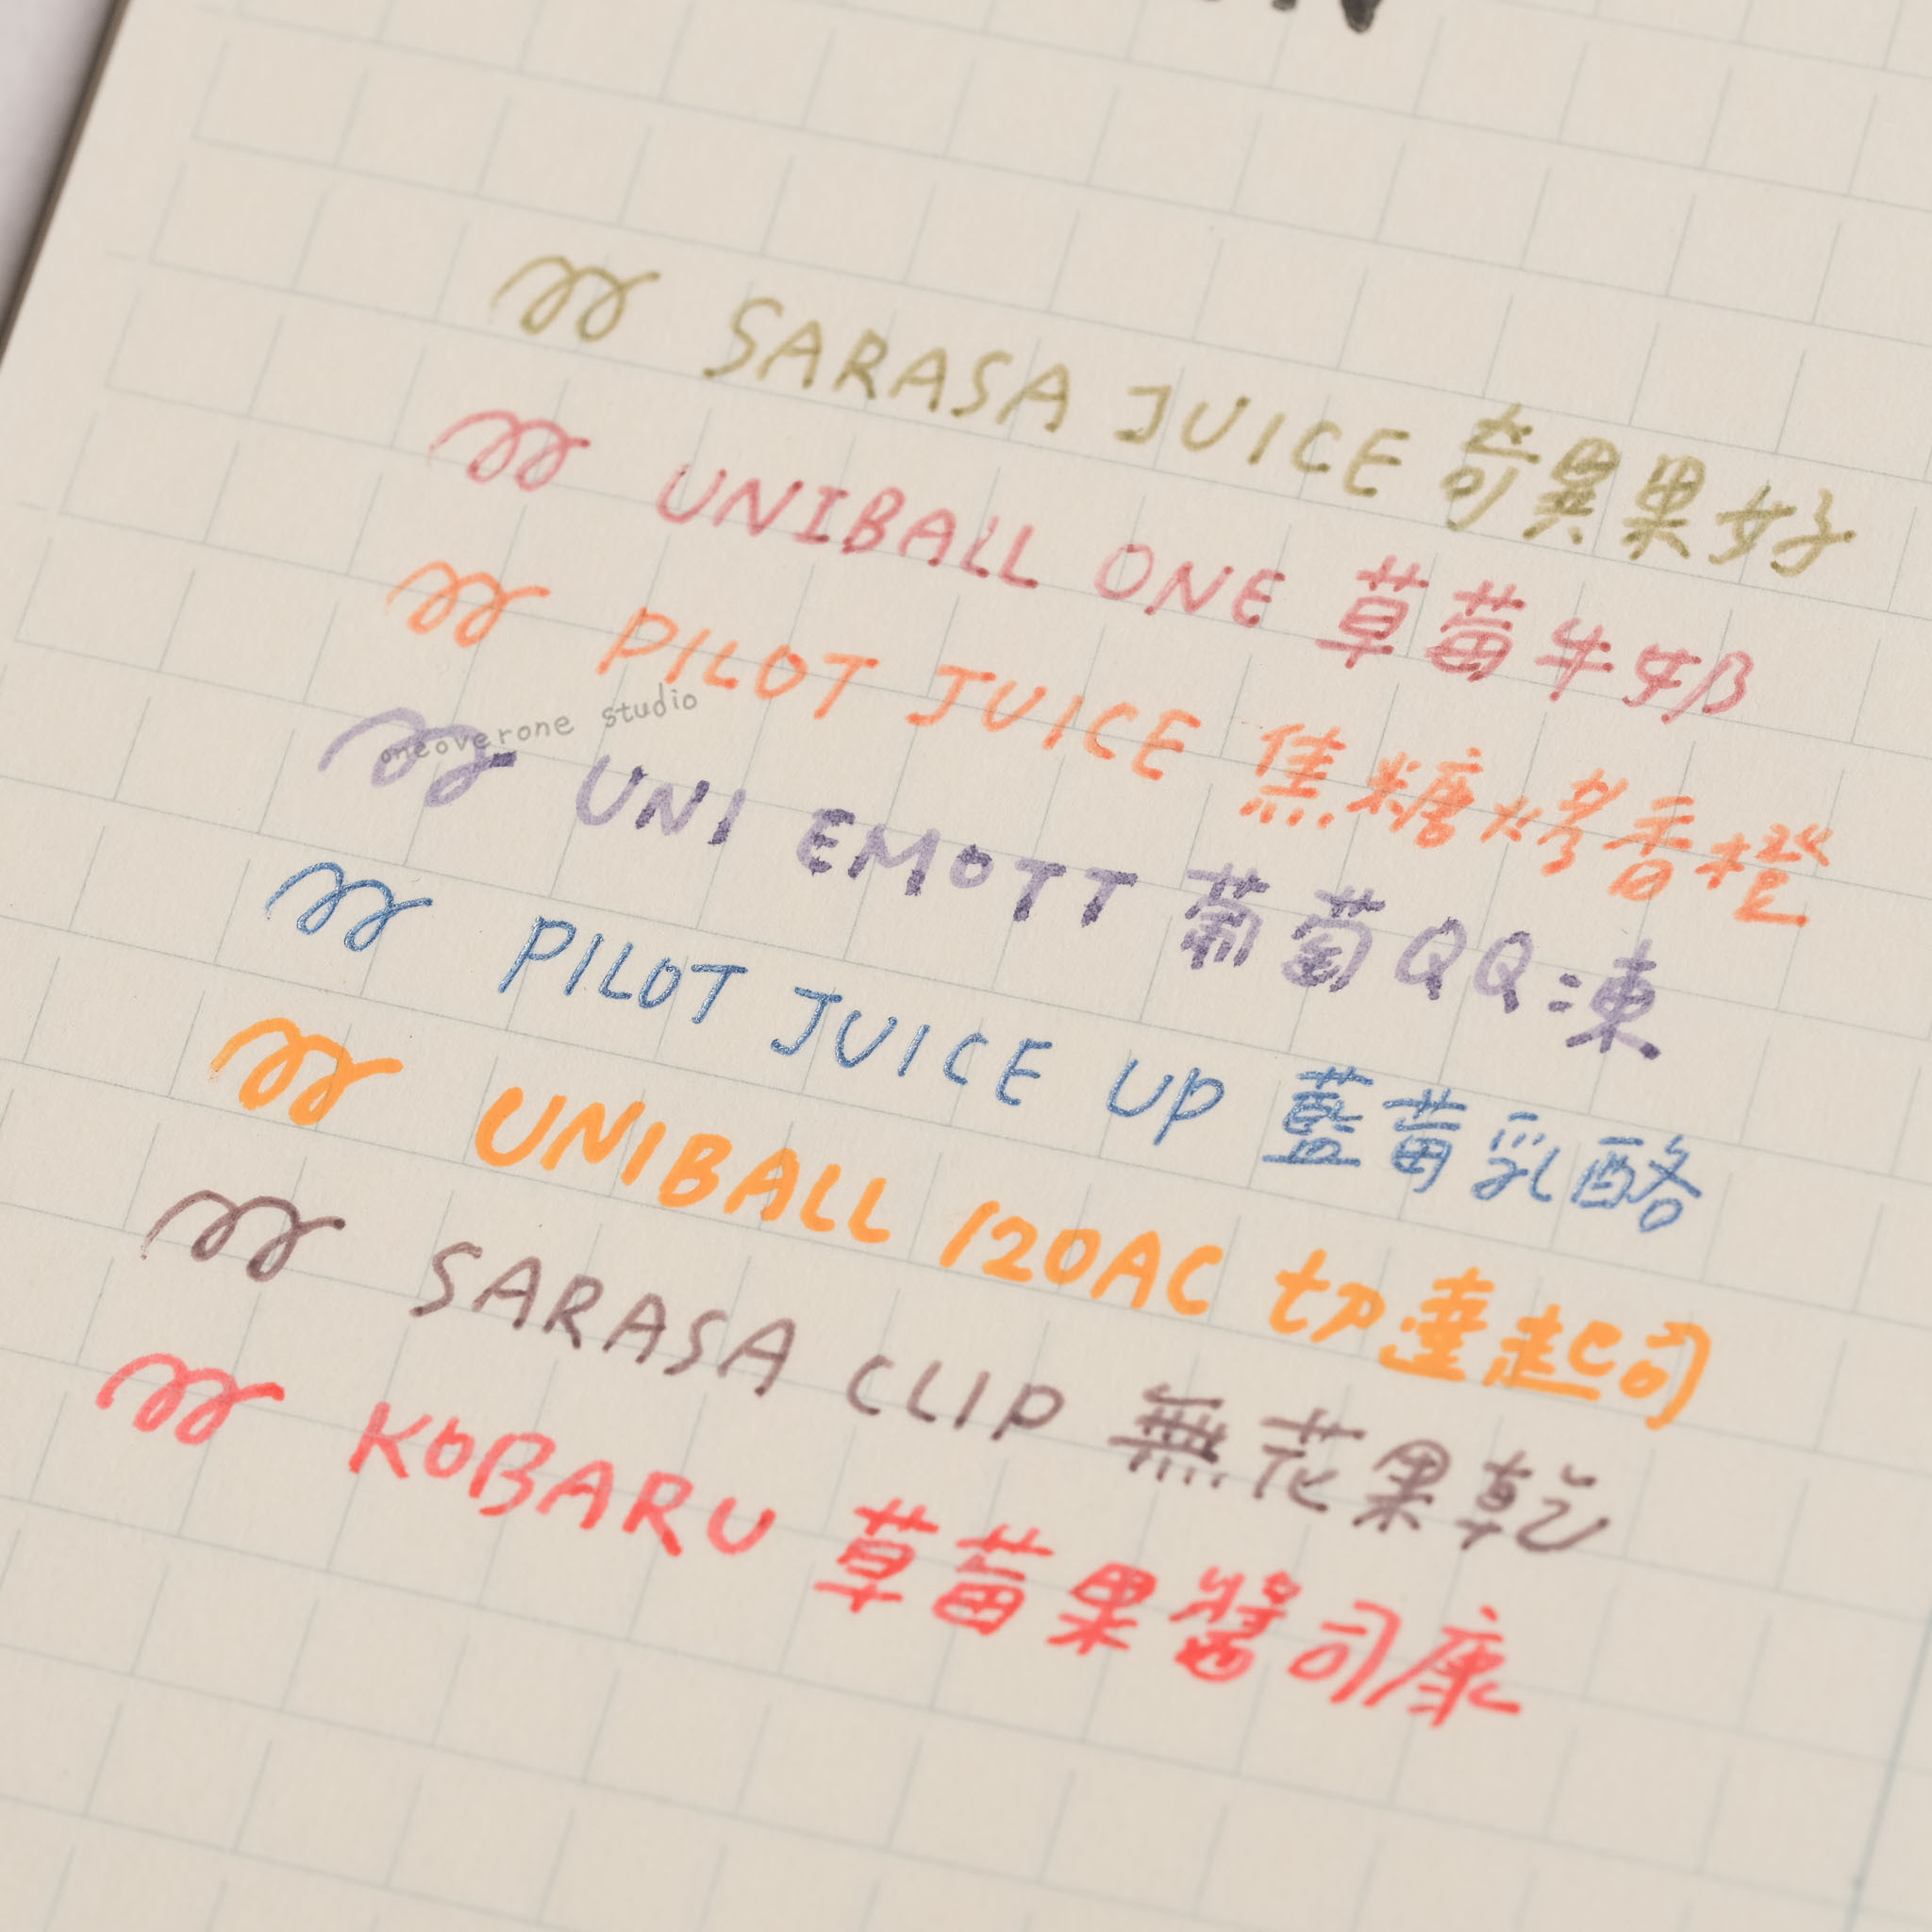 SARASA JUICE 奇異果好
UNIBALL ONE 草莓牛奶
PILOT JUICE 焦糖烤香橙
oneoverone studio
UNI EMOTT 葡萄QQ凍
PILOT JUICE UP 藍莓乳酪
UNIBALL 120AC 切達起司
SARASA CLIP 無花果乾
KOBARU 草莓果醬司康